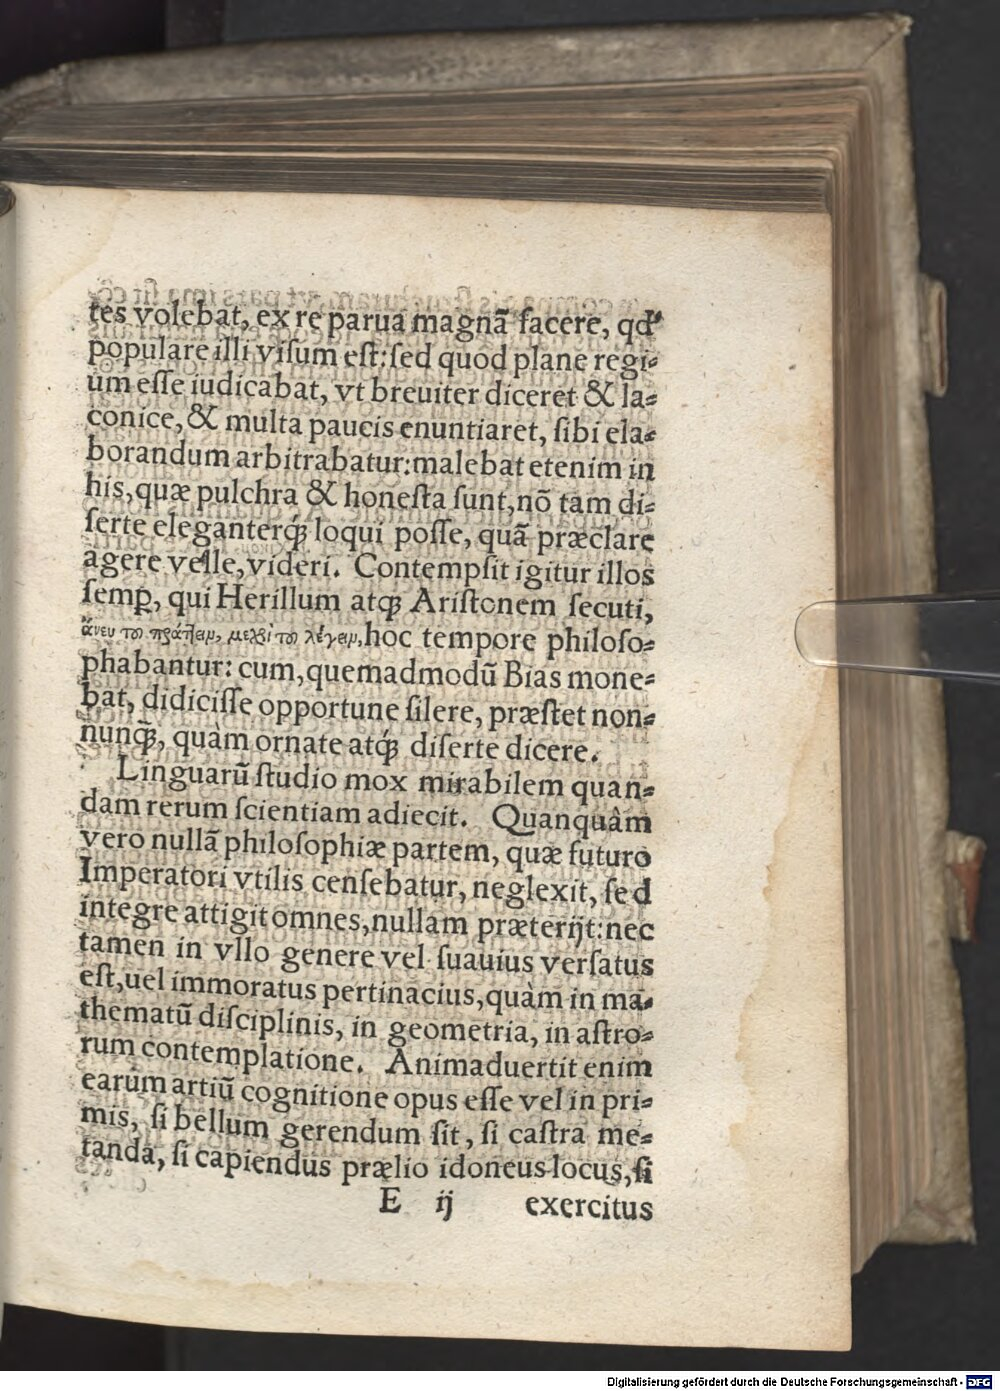 tes volebat, ex re parua magnã facere, qđ
populare illi visum est: sed quod plane regi⸗
um esse iudicabat, vt breuiter diceret & la⸗
conice, & multa paucis enuntiaret, sibi ela⸗
borandum arbitrabatur: malebat etenim in
his, quæ pulchra & honesta sunt, nõ tam di⸗
serte eleganterq́; loqui posse, quã præclare
agere velle, videri. Contempsit igitur illos
semꝑ, qui Herillum atq; Aristonem secuti,
ἄνευ τοῦ πράττειν, μέχρι τοῦ λέγειν, hoc tempore philoso⸗
phabantur: cum, quemadmodũ Bias mone⸗
bat, didicisse opportune silere, præstet non⸗
nunq̃;, quàm ornate atq́; diserte dicere.
Linguarũ studio mox mirabilem quan⸗
dam rerum scientiam adiecit. Quanquâm
vero nullã philosophiæ partem, quæ futuro
Imperatori vtilis censebatur, neglexit, sed
integre attigit omnes, nullam præterijt: nec
tamen in vllo genere vel suauius versatus
est, uel immoratus pertinacius, quàm in ma⸗
thematũ disciplinis, in geometria, in astro⸗
rum contemplatione. Animaduertit enim
earum artiũ cognitione opus esse vel in pri⸗
mis, si bellum gerendum sit, si castra me⸗
tanda, si capiendus prælio idoneus locus, si
E ij exercitus
Digitalisierung gefördert durch die Deutsche Forschungsgemeinschaft - DFG